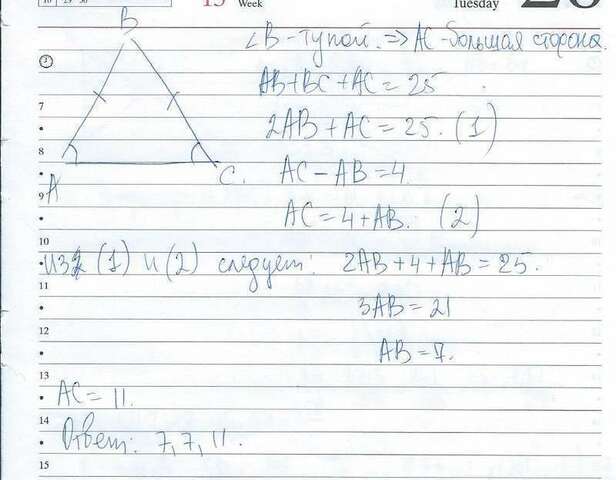 13 Week
Tuesday 20
∠B - тупой. => AC - большая сторона.
AB+BC+AC=25
2AB+AC=25. (1)
AC-AB=4.
AC=4+AB. (2)
из (1) и (2) следует: 2AB+4+AB=25.
3AB=21
AB=7.
AC=11.
Ответ: 7,7,11.
B
A
C.
7
8
9
10
11
12
13
14
15